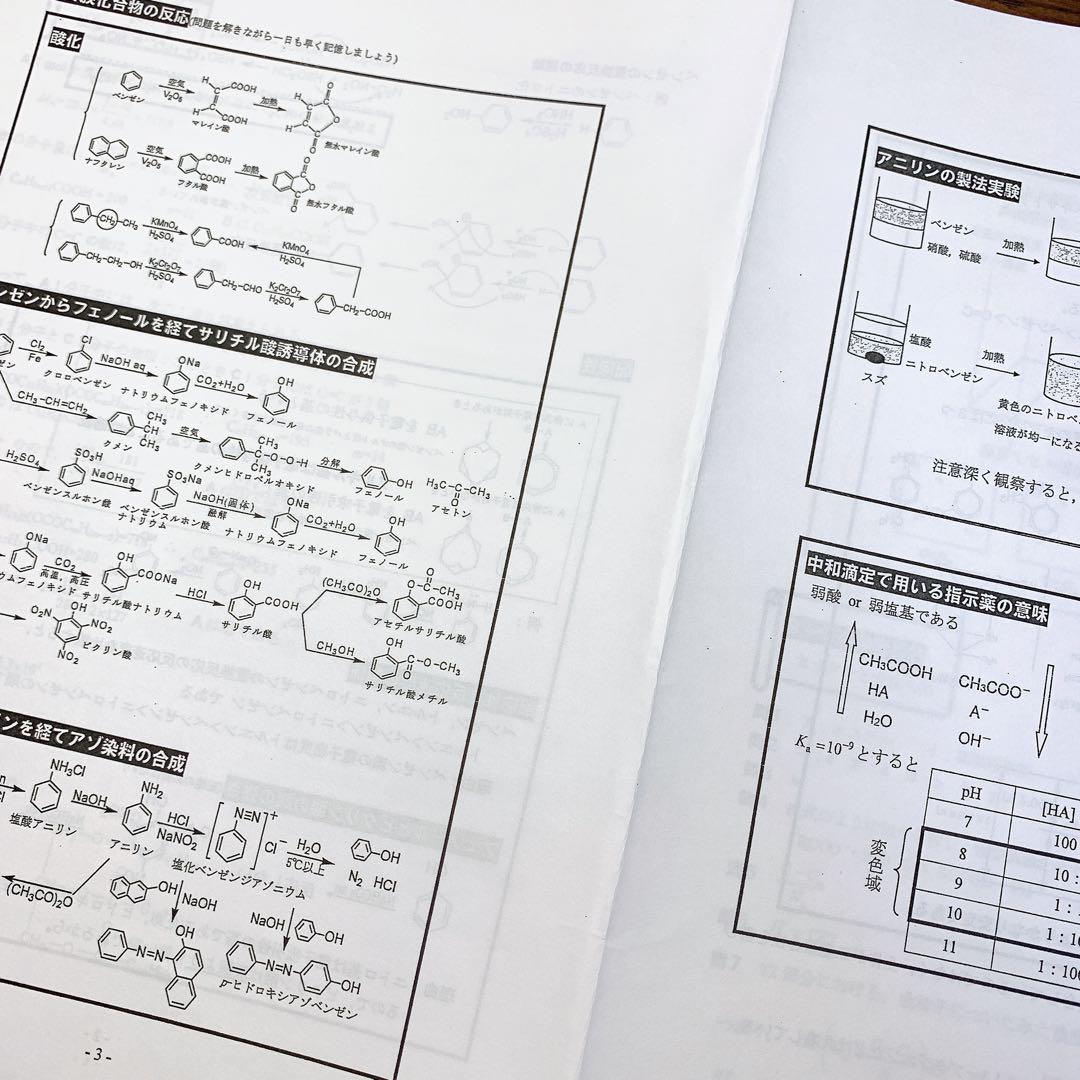 酸化合物の反応(問題を解きながら一日も早く記憶しましょう)
酸化
ベンゼン 空気 V₂O₅ H COOH H COOH マレイン酸 加熱 H H O O O 無水マレイン酸
ナフタレン 空気 V₂O₅ COOH COOH フタル酸 加熱 O O O 無水フタル酸
CH₂-CH₃ KMnO₄ H₂SO₄ COOH KMnO₄ H₂SO₄
CH₂-CH₂-OH K₂Cr₂O₇ H₂SO₄ CH₂-CHO K₂Cr₂O₇ H₂SO₄ CH₂-COOH
ンゼンからフェノールを経てサリチル酸誘導体の合成
ゼン Cl₂ Fe Cl クロロベンゼン NaOH aq ONa ナトリウムフェノキシド CO₂+H₂O OH フェノール
CH₃-CH=CH₂ CH₃ CH CH₃ クメン 空気 CH₃ C-O-O-H CH₃ クメンヒドロペルオキシド 分解 OH フェノール H₃C-C-CH₃ O アセトン
H₂SO₄ SO₃H ベンゼンスルホン酸 NaOHaq SO₃Na ベンゼンスルホン酸ナトリウム NaOH(固体) 融解 ONa ナトリウムフェノキシド CO₂+H₂O OH フェノール
ONa ウムフェノキシド CO₂ 高温，高圧 OH COONa サリチル酸ナトリウム HCl OH COOH サリチル酸 (CH₃CO)₂O O-C-CH₃ O COOH アセチルサリチル酸
CH₃OH OH C-O-CH₃ O サリチル酸メチル
O₂N OH NO₂ NO₂ ピクリン酸
ンを経てアゾ染料の合成
NH₃Cl 塩酸アニリン NaOH NH₂ アニリン HCl NaNO₂ N≡N + Cl⁻ 塩化ベンゼンジアゾニウム H₂O 5℃以上 OH N₂ HCl
(CH₃CO)₂O OH NaOH NaOH OH
OH N=N N=N OH
p-ヒドロキシアゾベンゼン
-3-
アニリンの製法実験
ベンゼン
硝酸，硫酸
加熱
塩酸
ニトロベンゼン
スズ
加熱
黄色のニトロベ
溶液が均一になる
注意深く観察すると，
中和滴定で用いる指示薬の意味
弱酸 or 弱塩基である
CH₃COOH CH₃COO⁻
HA A⁻
H₂O OH⁻
Kₐ=10⁻⁹とすると
pH [HA]
7 100
8 10 :
9 1 :
10 1 : 10
11 1 : 100
変色域